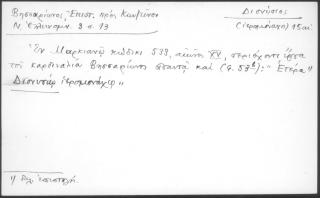 Βησσαρίωνος, Ἐπιστ. πρὸς
Διονύσιος
Ν. Ἑλληνομν. 3 σ. 13
(ἱερομόναχος) 15 αἰ
Ἐν Μαρκιανῷ κώδικι 533, αἰῶνος XV, περιέχοντι ἔργα
τοῦ καρδιναλίου Βησσαρίωνος ἀπαντᾷ καὶ (φ. 53β): "Ἑτέρα 1/
Διονυσίῳ ἱερομονάχῳ"
1/ Δηλ. ἐπιστολή.